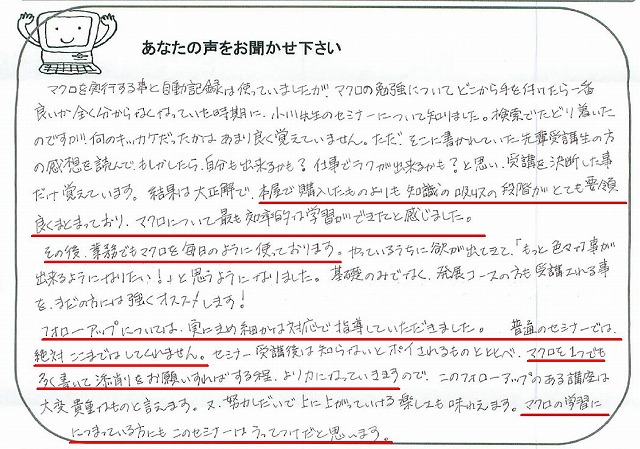 あなたの声をお聞かせ下さい
マクロを実行する事と自動記録は使っていましたが、マクロの勉強についてどこから手を付けたら一番
良いか全く分からなくなっていた時期に、小川先生のセミナーについて知りました。検索でたどり着いた
のですが何のキッカケだったかはあまり良く覚えていません。ただ、そこに書かれていた先輩受講生の方
の感想を読んで、もしかしたら、自分も出来るかも?仕事でラクが出来るかも?と思い、受講を決断した事
だけ覚えています。結果は大正解で、本屋で購入したものよりも知識の吸収の段階がとても要領
良くまとまっており、マクロについて最も効率的な学習ができたと感じました。
その後、業務でもマクロを毎日のように使っております。やっているうちに欲が出てきて、「もっと色々な事が
出来るようになりたい!」と思うようになりました。基礎のみでなく、発展コースの方も受講される事
を、まだの方には強くオススメします!
フォローアップについては、実にきめ細かな対応で指導していただきました。普通のセミナーでは、
絶対ここまではしてくれません。セミナー受講後は知らないとポイされるものと比べ、マクロを1つでも
多く書いて添削をお願いすればする程、より力になっていきますので、このフォローアップのある講座は
大変貴重なものと言えます。又、努力しだいで上に上がっていける楽しさも味わえます。マクロの学習に
につまっている方にもこのセミナーはうってつけだと思います。